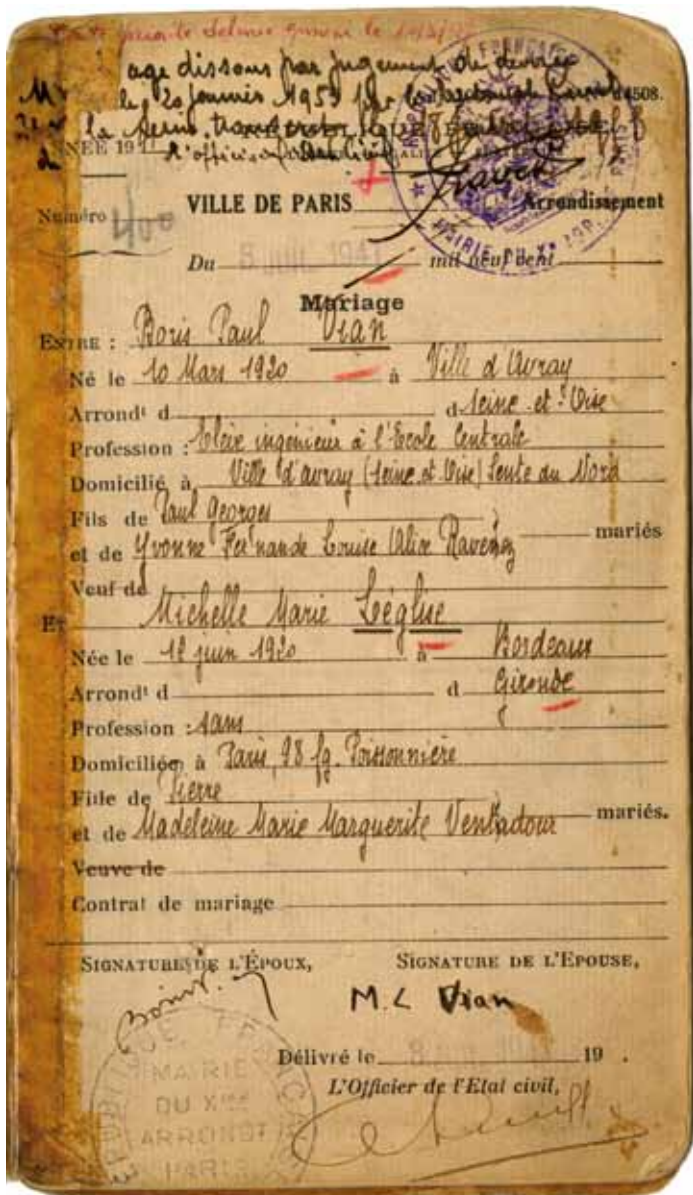 age dissous par jugement de
le 20 janvier 195 par le
4508.
la Seine
NÉE 19
l'officier
Numéro 400
VILLE DE PARIS Arrondissement
Du 8 1941 mil neuf cent
Mariage
ENTRE : Boris Paul Vian
Né le 10 Mars 1920 à Ville d'Avray
Arrondt d d Seine et Oise
Profession : Elève ingénieur à l'Ecole Centrale
Domicilié à Ville d'avray (Seine et Oise) Sente du Nord
Fils de Paul Georges
et de Yvonne Fernande Louise Alice Ravenez mariés
Veuf de
Et Michelle Marie Léglise
Née le 12 juin 1920 à Bordeaux
Arrondt d d Gironde
Profession : sans
Domiciliée à Paris, 98 fg. Poissonnière
Fille de Pierre
et de Madeleine Marie Marguerite Ventadour mariés.
Veuve de
Contrat de mariage
SIGNATURE DE L'ÉPOUX, SIGNATURE DE L'EPOUSE,
M. L Vian
Délivré le 8 1941 19 .
L'Officier de l'Etat civil,
MAIRIE
DU Xme
ARRONDT
PARIS